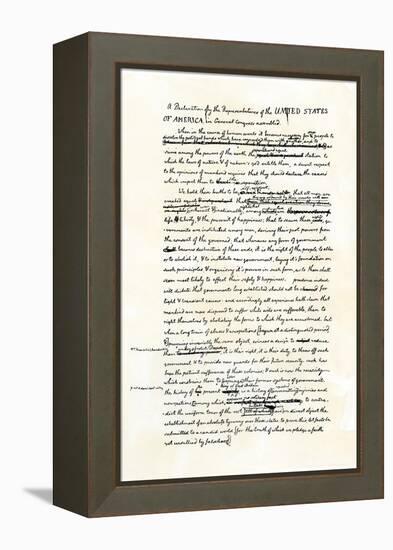 A Declaration by the Representatives of the UNITED STATES
OF AMERICA, in General Congress assembled.
When in the course of human events it becomes necessary for people to
dissolve the political bands which have connected them with another, and to
-sume among the powers of the earth the station to
which the laws of nature & of nature's god entitle them, a decent respect
to the opinions of mankind requires that they should declare the causes
which impel them to the separation.
We hold these truths to be self-evident that all men are
created equal
life & liberty, & the pursuit of happiness; that to secure these rights, go-
-vernments are instituted among men, deriving their just powers from
the consent of the governed; that whenever any form of government
becomes destructive of these ends, it is the right of the people to alter
or to abolish it, & to institute new government, laying it's foundation on
such principles & organising it's powers in such form, as to them shall
seem most likely to effect their safety & happiness. prudence indeed
will dictate that governments long established should not be changed for
light & transient causes: and accordingly all experience hath shewn that
mankind are more disposed to suffer while evils are sufferable, than to
right themselves by abolishing the forms to which they are accustomed. but
when a long train of abuses & usurpations [begun at a distinguished period
& pursuing invariably the same object, evinces a design to reduce
them it is their right, it is their duty to throw off such
government & to provide new guards for their future security. such has
been the patient sufferance of these colonies; & such is now the necessity
which constrains them to [expunge] their former systems of government.
the history of present is a history of injuries and
usurpations [among which
-dict the uniform tenor of the rest in direct object the
establishment of an absolute tyranny over these states. to prove this let facts be
submitted to a candid world [for the truth of which we pledge a faith
yet unsullied by falsehood]